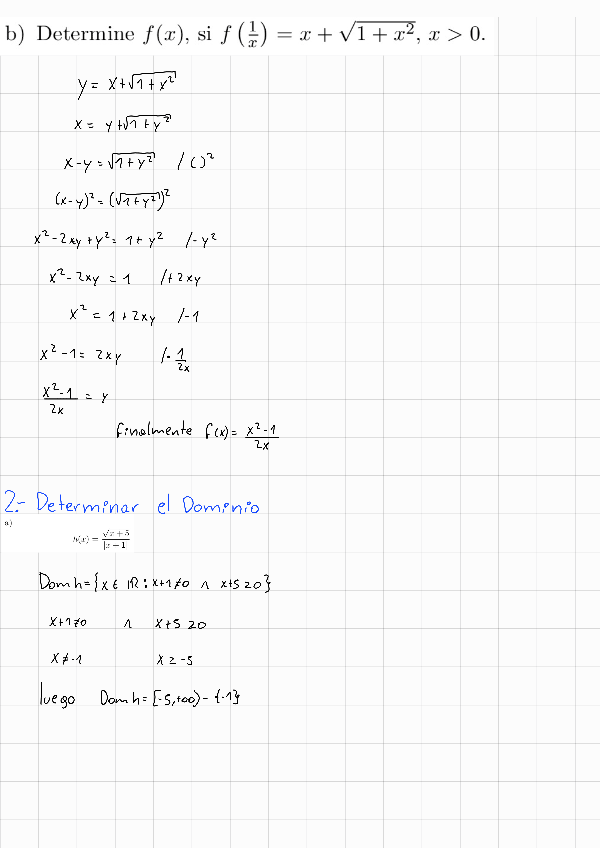 b) Determine f(x), si f(1/x) = x + √(1 + x²), x > 0.
y = x+√(1+x²)
x = y+√(1+y²)
x-y = √(1+y²) /()²
(x-y)² = (√(1+y²))²
x²-2xy+y² = 1+y² /-y²
x²-2xy = 1 /+2xy
x² = 1+2xy /-1
x²-1 = 2xy /· 1/2x
(x²-1)/2x = y
finalmente f(x) = (x²-1)/2x
2.- Determinar el Dominio
a)
h(x) = √(x+5)/|x-1|
Dom h = {x ∈ ℝ : x+1≠0 ∧ x+5≥0}
x+1≠0 ∧ x+5≥0
x≠-1 x≥-5
luego Dom h = [-5,+∞) - {-1}